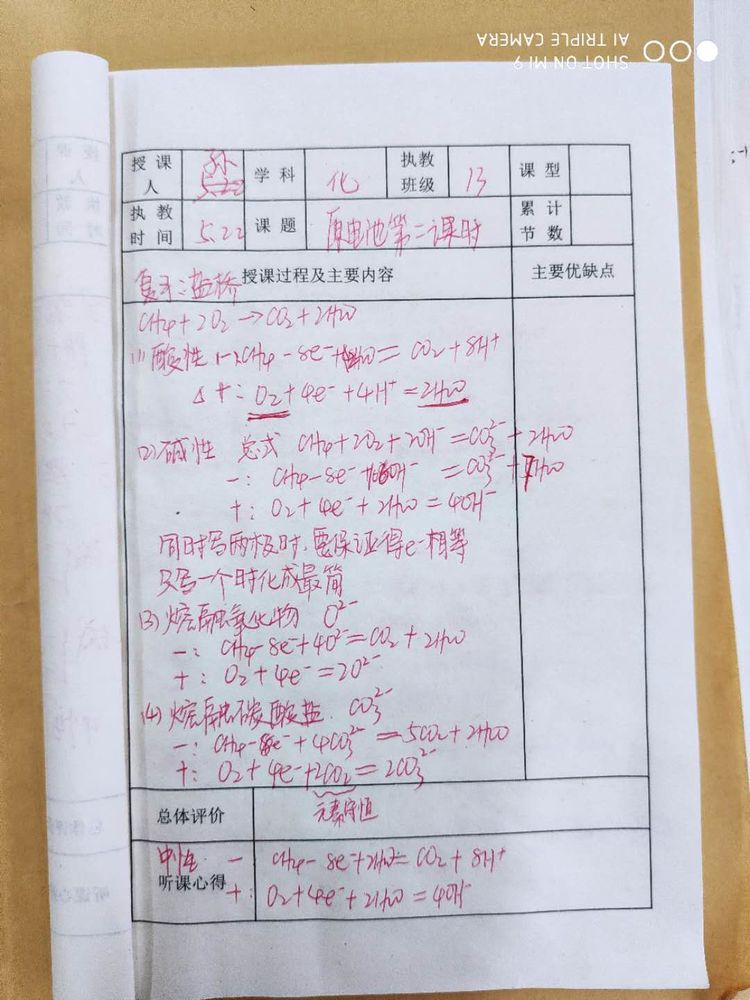 SHOT ON MI 9
AI TRIPLE CAMERA
授课人 孙 学科 化 执教班级 13 课型
执教时间 5.22 课题 原电池第二课时 累计节数
授课过程及主要内容 主要优缺点
复习:盐桥
CH4+2O2→CO2+2H2O
(1)酸性 -:CH4-8e⁻+2H2O=CO2+8H⁺
△ +:O2+4e⁻+4H⁺=2H2O
(2)碱性 总式 CH4+2O2+2OH⁻=CO3²⁻+2H2O
-:CH4-8e⁻+10OH⁻=CO3²⁻+7H2O
+:O2+4e⁻+2H2O=4OH⁻
同时写两极时,要保证得e⁻相等
只写一个时化成最简
(3)熔融氧化物 O²⁻
-:CH4-8e⁻+4O²⁻=CO2+2H2O
+:O2+4e⁻=2O²⁻
(4)熔融碳酸盐 CO3²⁻
-:CH4-8e⁻+4CO3²⁻=5CO2+2H2O
+:O2+4e⁻+2CO2=2CO3²⁻
总体评价 元素守恒
中性 - CH4-8e⁻+2H2O=CO2+8H⁺
听课心得 +:O2+4e⁻+2H2O=4OH⁻